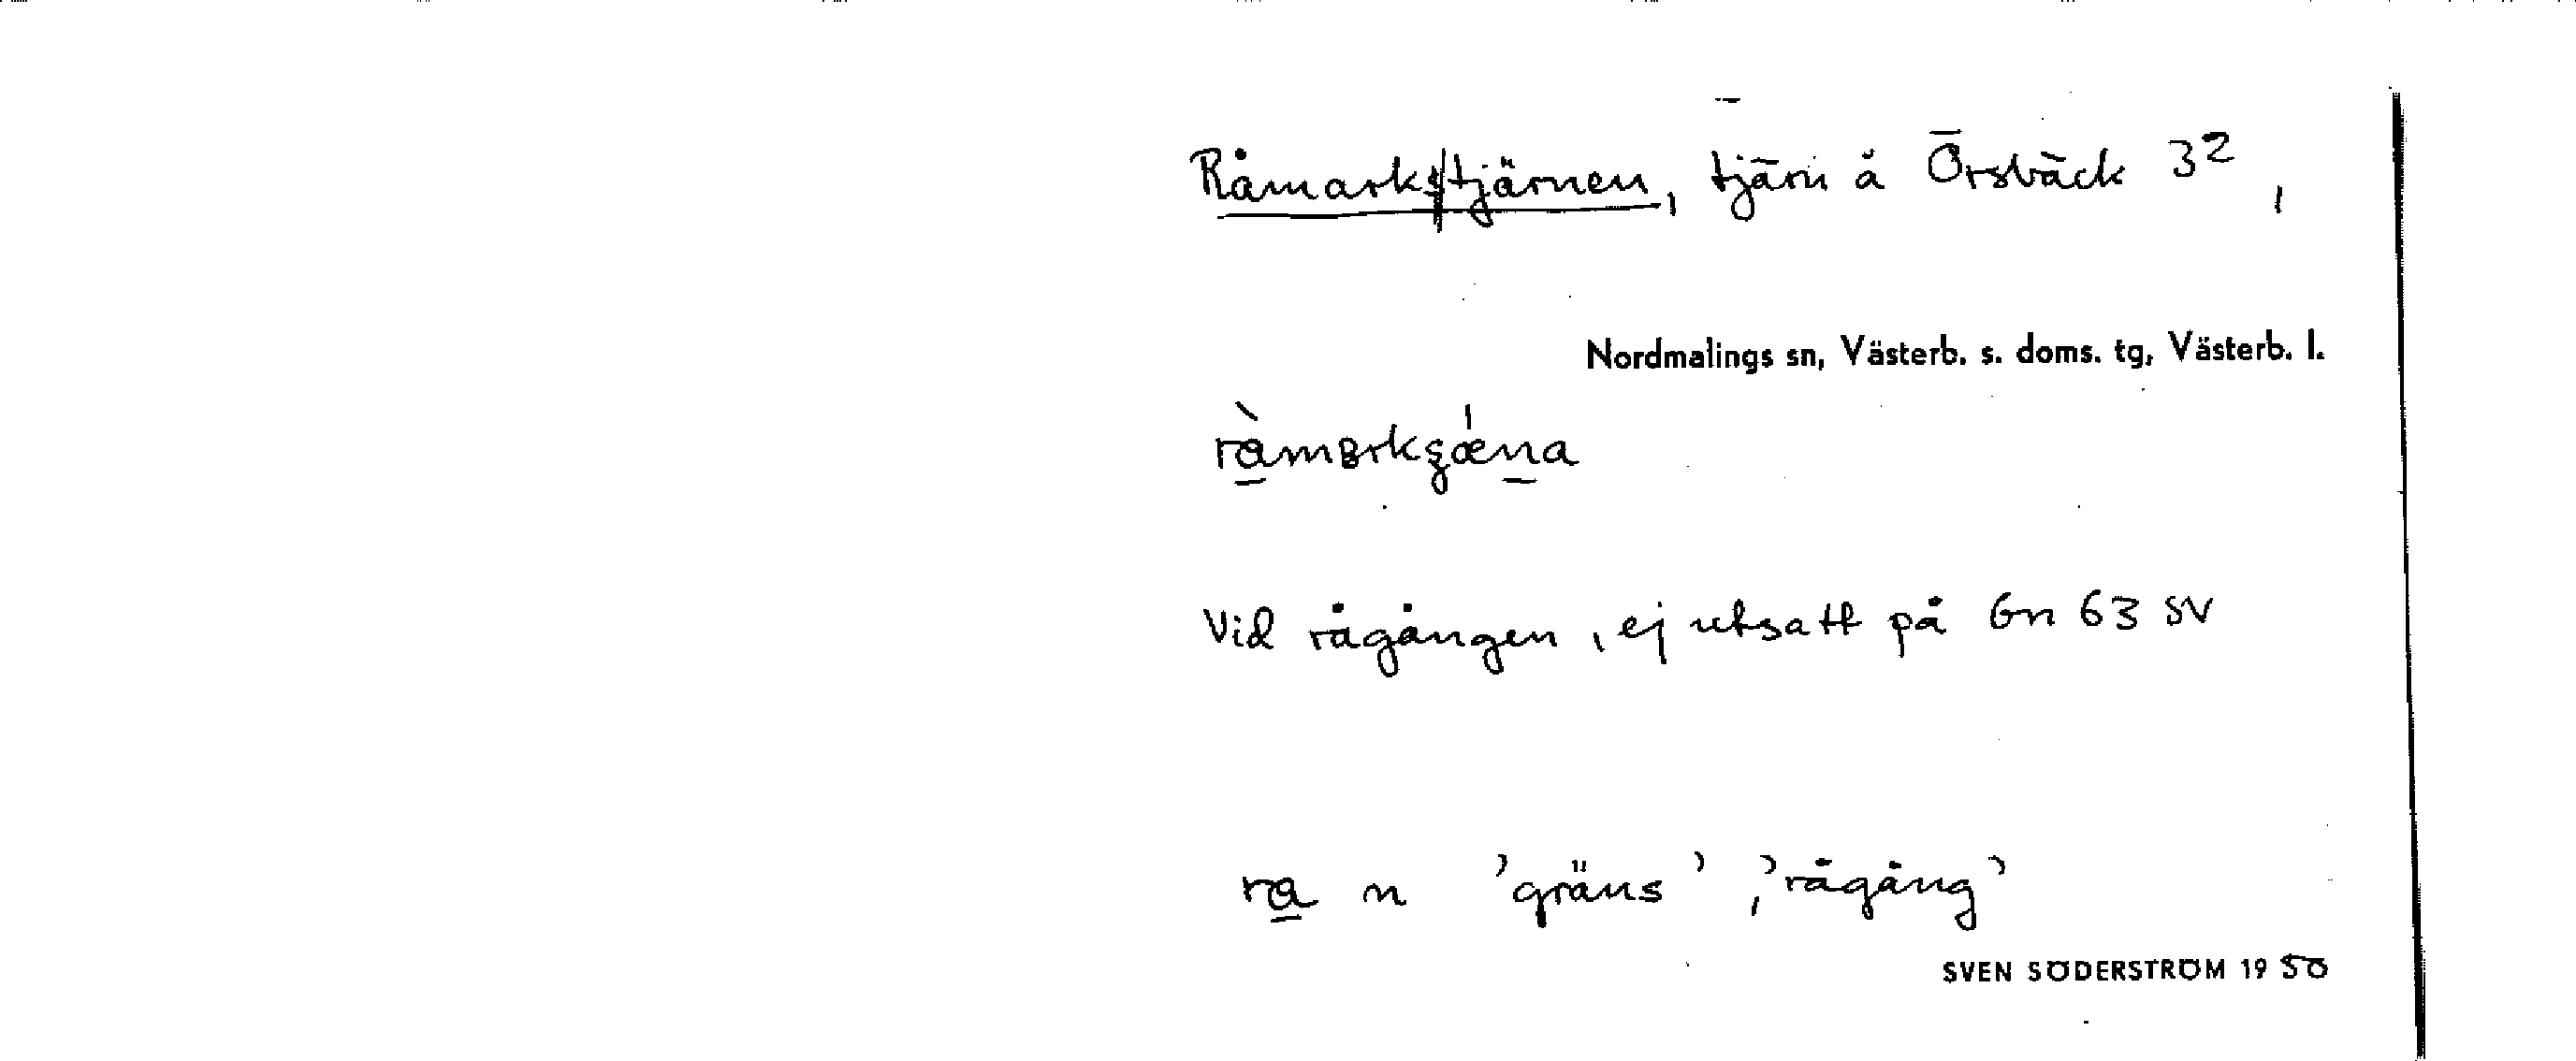 Råmarkstjärnen, tjärn å Örsbäck 3²,
Nordmalings sn, Västerb. s. doms. tg, Västerb. l.
Vid rågången, ej utsatt på Gn 63 SV
ra n 'gräns', 'rågång'
SVEN SÖDERSTRÖM 1950